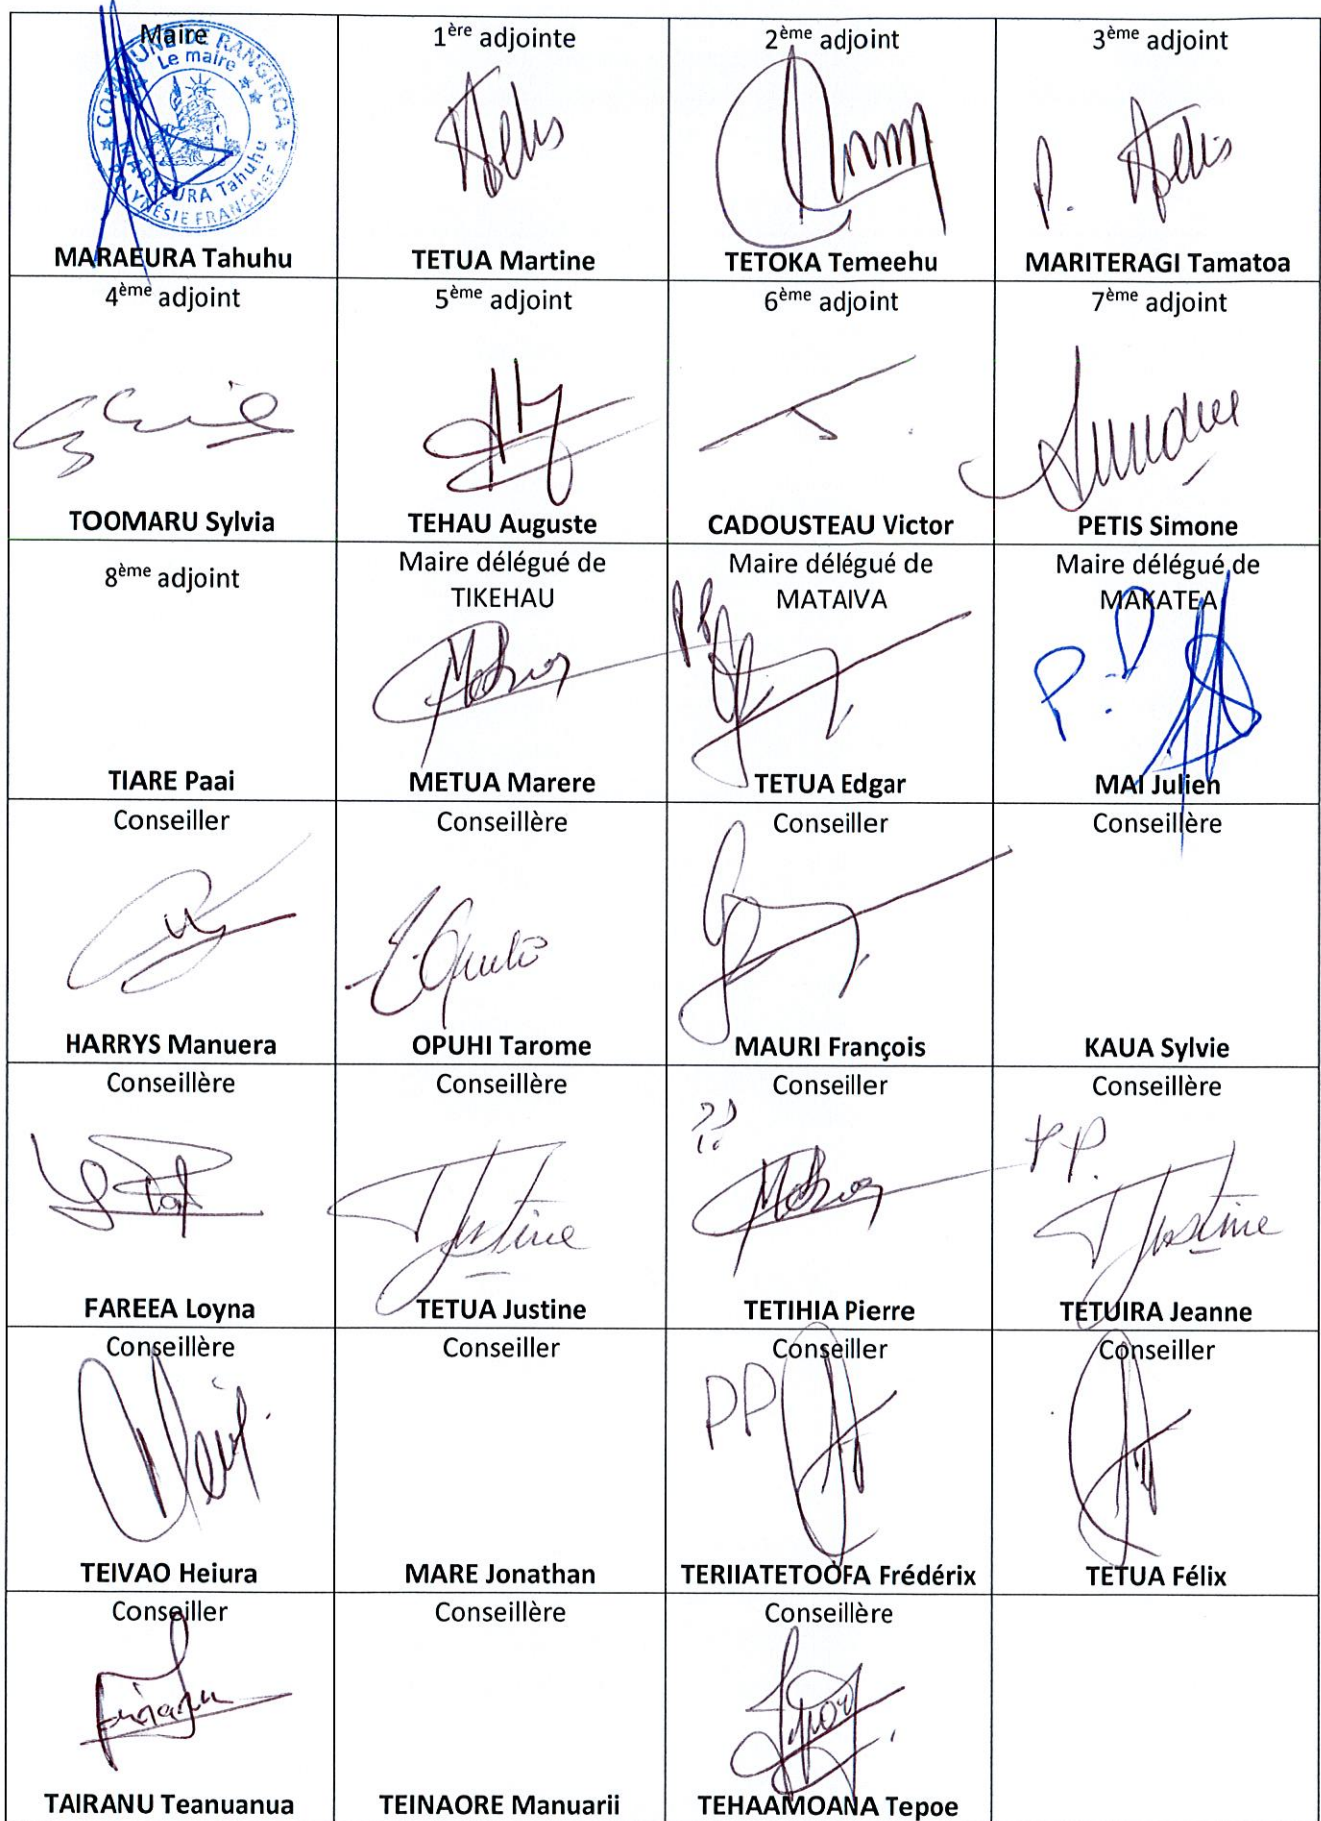 Maire
COMMUNE DE RANGIROA
Le maire
MARAEURA Tahuhu
POLYNÉSIE FRANÇAISE
MARAEURA Tahuhu
1ère adjointe
TETUA Martine
2ème adjoint
TETOKA Temeehu
3ème adjoint
P.
MARITERAGI Tamatoa
4ème adjoint
TOOMARU Sylvia
5ème adjoint
TEHAU Auguste
6ème adjoint
CADOUSTEAU Victor
7ème adjoint
PETIS Simone
8ème adjoint
TIARE Paai
Maire délégué de
TIKEHAU
METUA Marere
Maire délégué de
MATAIVA
TETUA Edgar
Maire délégué de
MAKATEA
MAI Julien
Conseiller
HARRYS Manuera
Conseillère
OPUHI Tarome
Conseiller
MAURI François
Conseillère
KAUA Sylvie
Conseillère
FAREEA Loyna
Conseillère
Justine
TETUA Justine
Conseiller
TETIHIA Pierre
Conseillère
PP.
Justine
TETUIRA Jeanne
Conseillère
TEIVAO Heiura
Conseiller
MARE Jonathan
Conseiller
PP
TERIIATETOOFA Frédérix
Conseiller
TETUA Félix
Conseiller
TAIRANU Teanuanua
Conseillère
TEINAORE Manuarii
Conseillère
TEHAAMOANA Tepoe